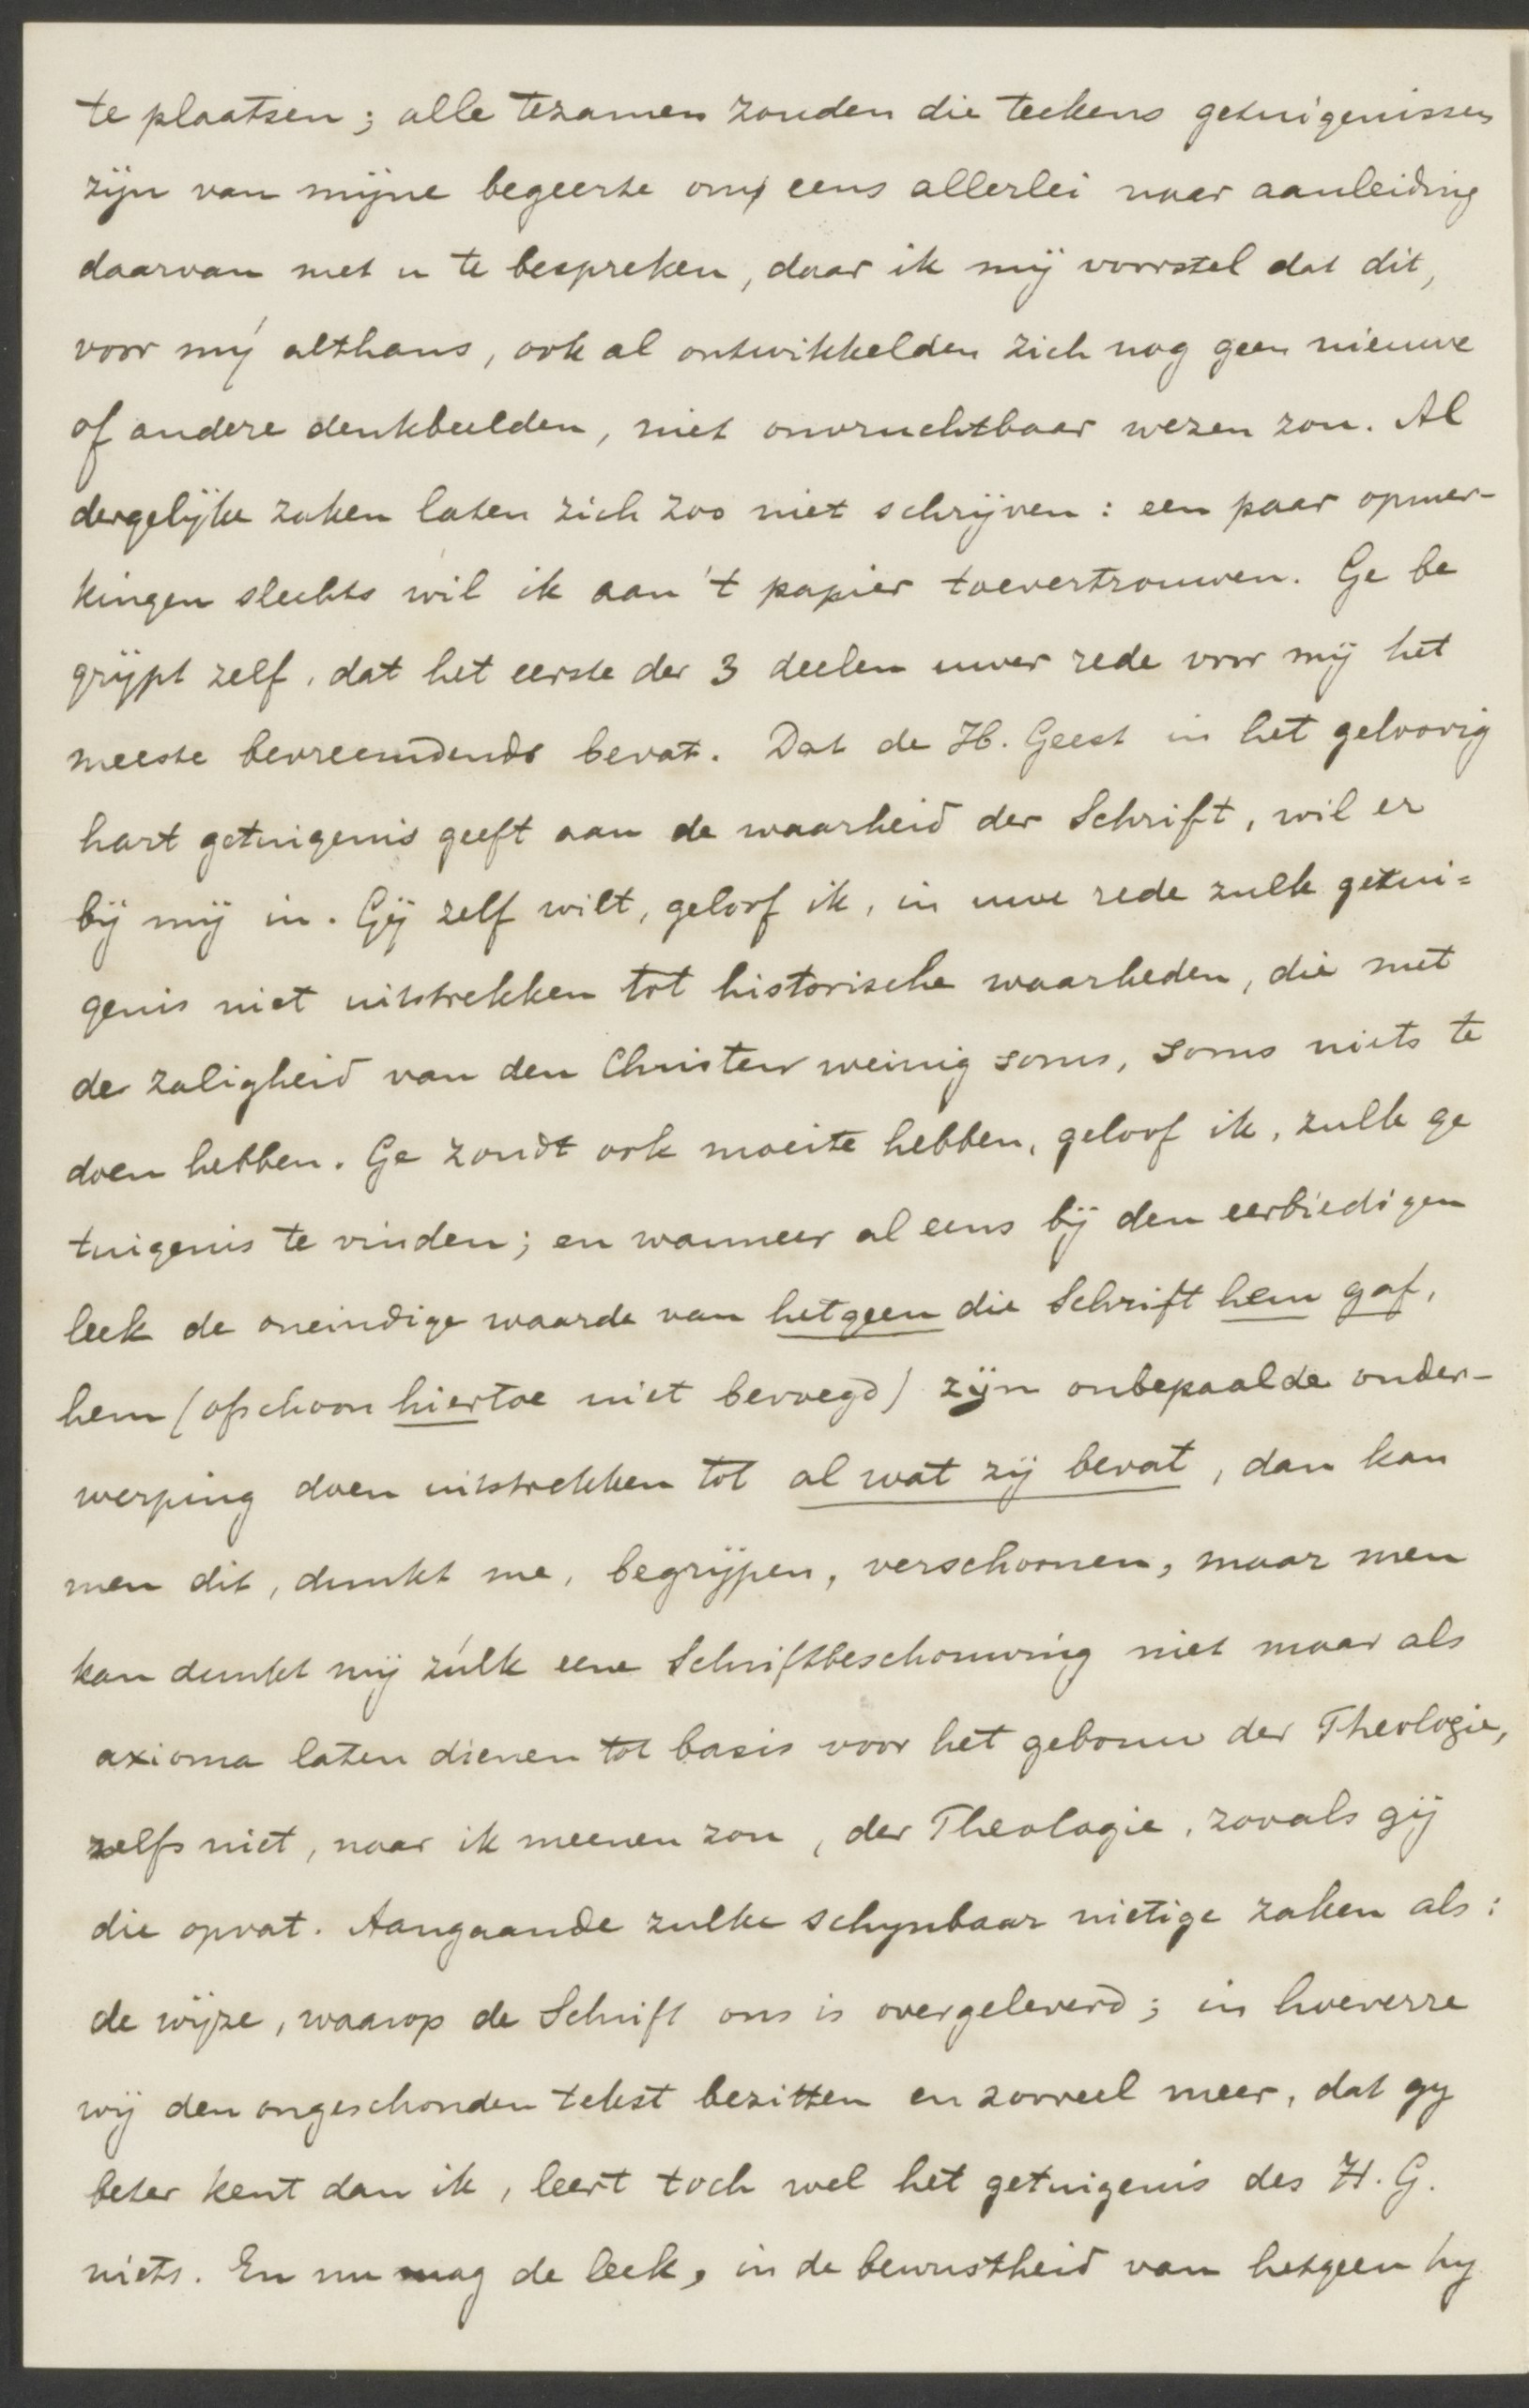 te plaatsen; alle tezamen zouden die teekens getuigenissen
zijn van mijne begeerte om eens allerlei naar aanleiding
daarvan met u te bespreken, daar ik mij voorstel dat dit,
voor mij althans, ook al ontwikkelden zich nog geen nieuwe
of andere denkbeelden, niet onvruchtbaar wezen zou. Al
dergelijke zaken laten zich zoo niet schrijven: een paar opmer-
kingen slechts wil ik aan 't papier toevertrouwen. Ge be
grijpt zelf, dat het eerste der 3 deelen uwer rede voor mij het
meeste bevreemdends bevat. Dat de H. Geest in het geloovig
hart getuigenis geeft aan de waarheid der Schrift, wil er
bij mij in. Gij zelf wilt, geloof ik, in uwe rede zulk getui=
genis niet uitstrekken tot historische waarheden, die met
de zaligheid van den Christen weinig soms, soms niets te
doen hebben. Ge zoudt ook moeite hebben, geloof ik, zulk ge
tuigenis te vinden; en wanneer al eens bij den eerbiedigen
leek de oneindige waarde van hetgeen die Schrift hem gaf,
hem (ofschoon hiertoe niet bevoegd) zijn onbepaalde onder-
werping doen uitstrekken tot al wat zij bevat, dan kan
men dit, dunkt me, begrijpen, verschoonen, maar men
kan dunkt mij zúlk eene Schriftbeschouwing niet maar als
axioma laten dienen tot basis voor het gebouw der Theologie,
zelfs niet, naar ik meenen zou, der Theologie, zooals gij
die opvat. Aangaande zulke schynbaar nietige zaken als:
de wijze, waarop de Schrift ons is overgeleverd; in hoeverre
wij den ongeschonden tekst bezitten en zooveel meer, dat gy
beter kent dan ik, leert toch wel het getuigenis des H. G.
niets. En nu mag de leek, in de bewustheid van hetgeen hy